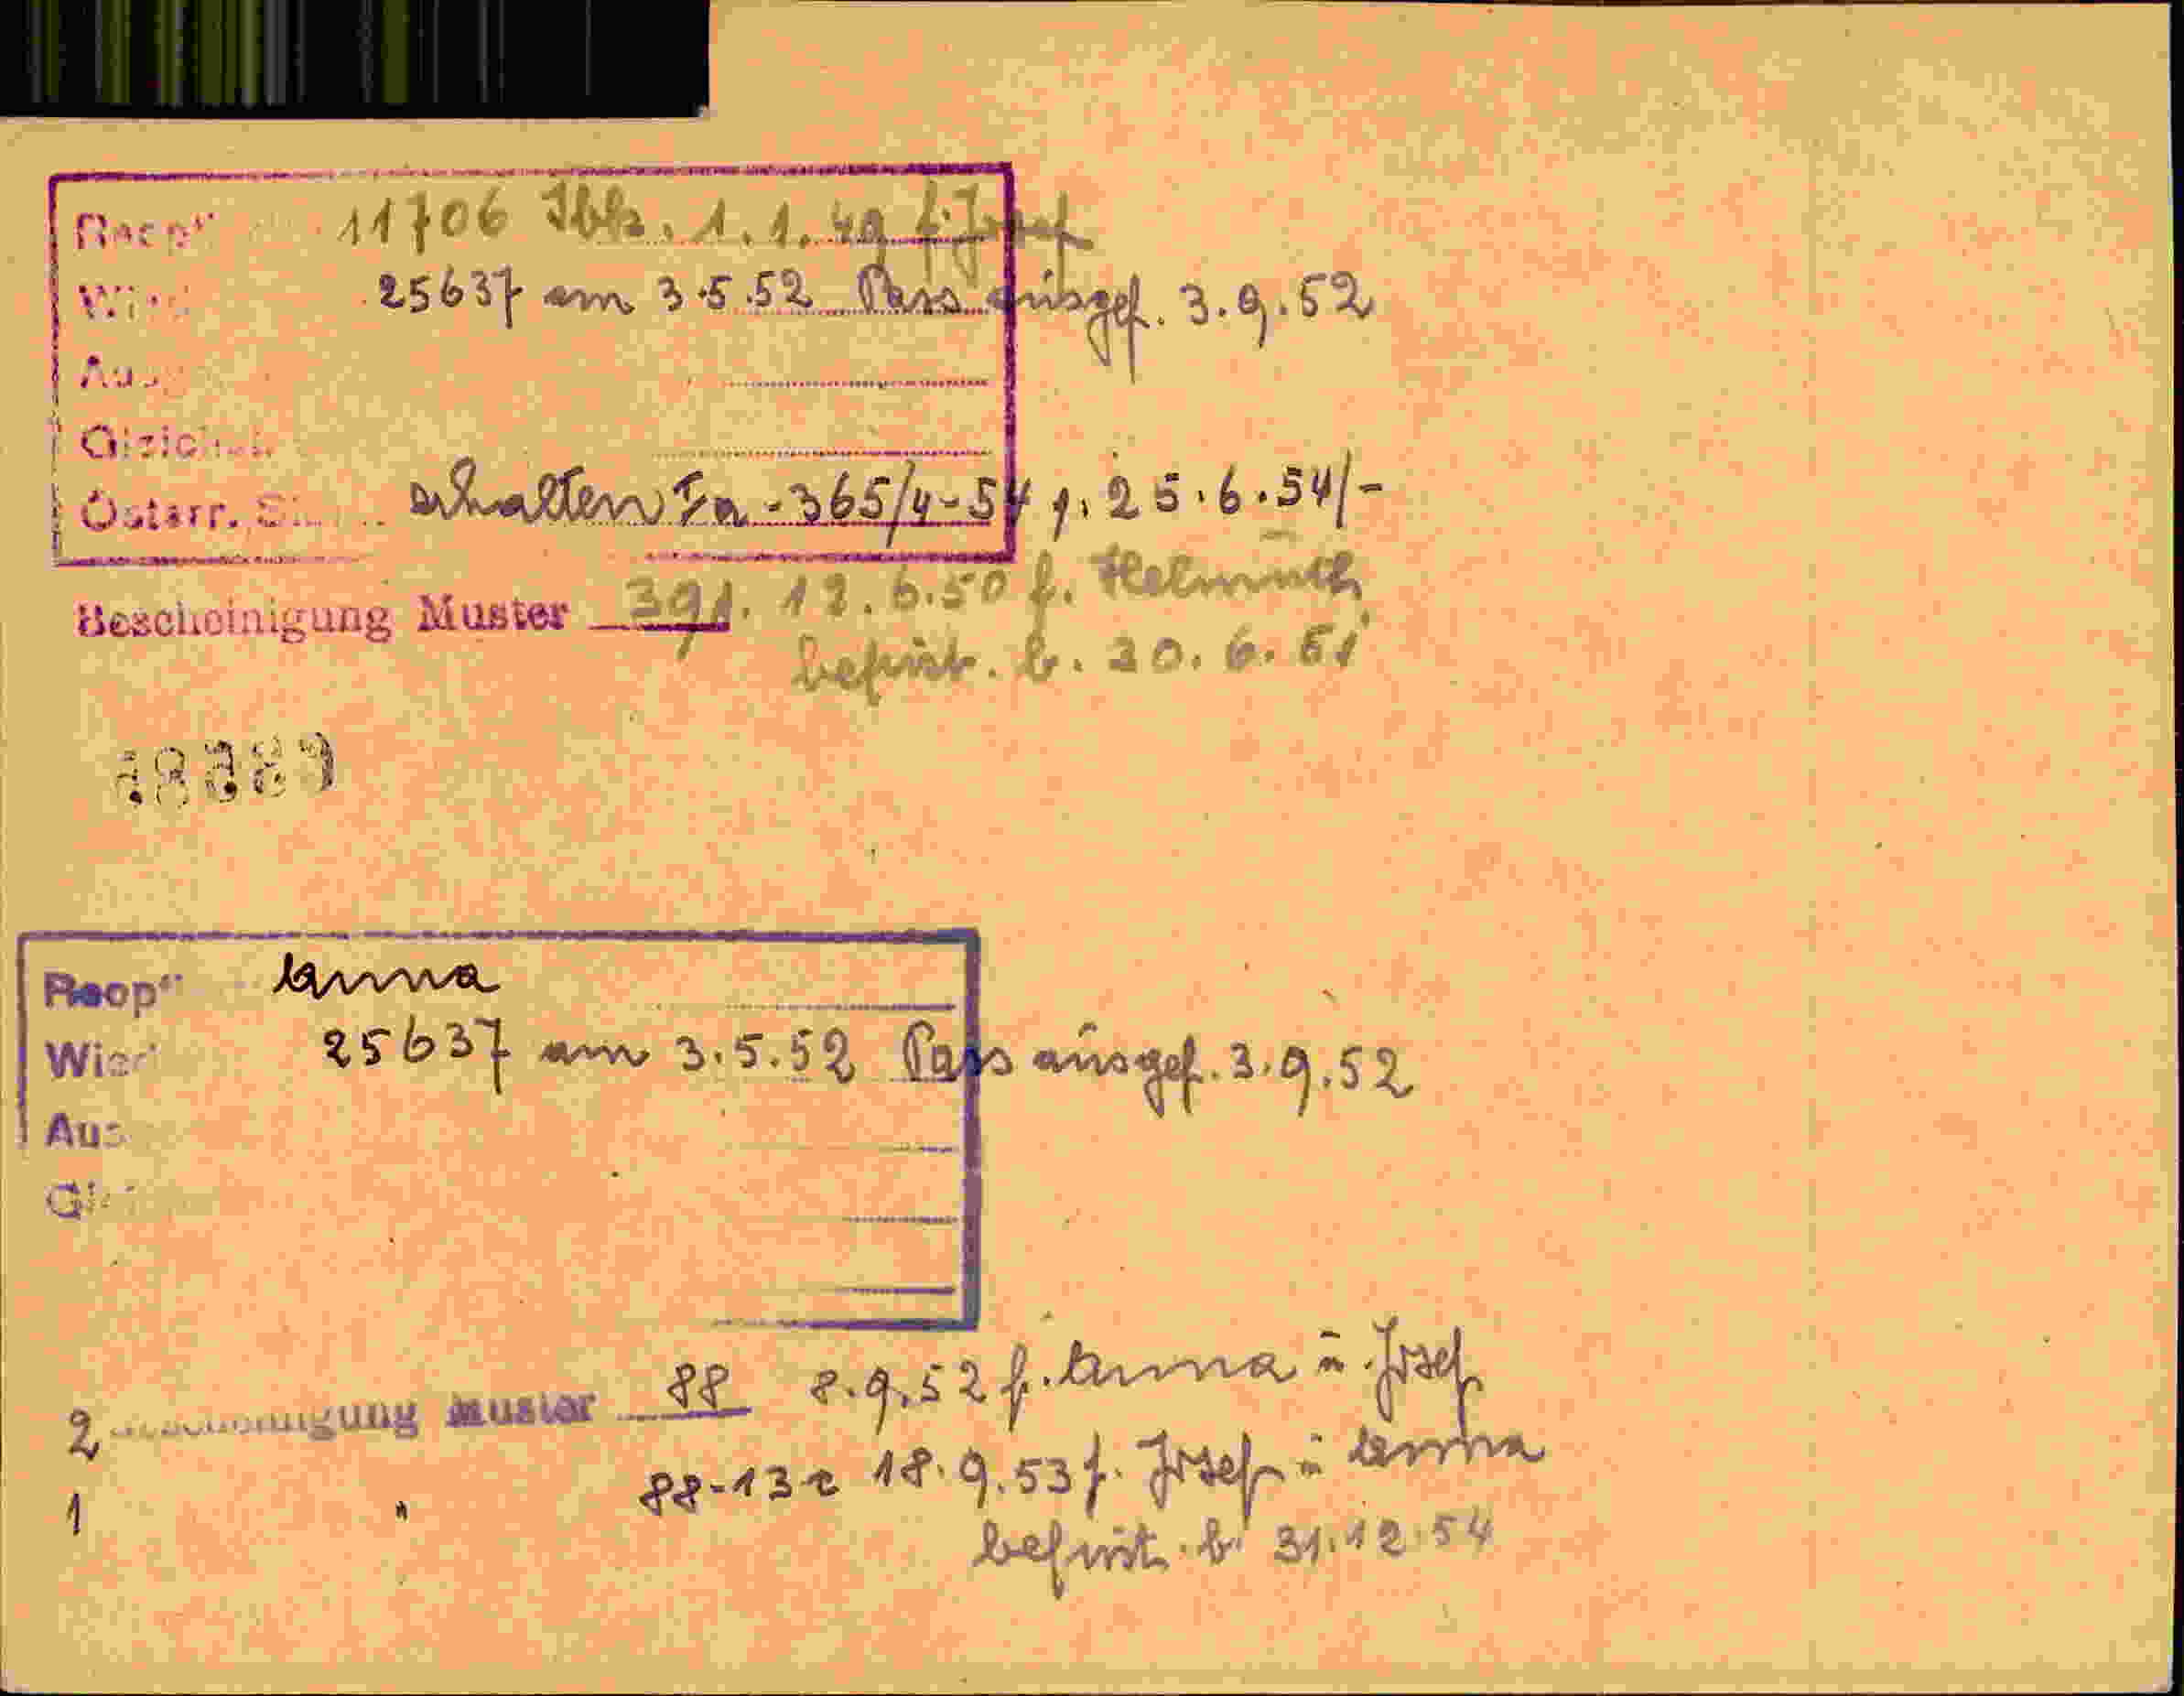 Reopt 11706 Ibk. 1.1.49 f. Josef
25637 am 3.5.52 Pass ausgef. 3.9.52
Österr. erhalten Ia-365/4-54 v. 25.6.54/-
Bescheinigung Muster 391. 12.6.50 f. Helmuth
befrist. b. 30.6.51
Reopt Anna
25637 am 3.5.52 Pass ausgef. 3.9.52
Aus
2 Muster 88 8.9.52 f. Anna u. Josef
1 " 88-13 18.9.53 f. Josef u. Anna
befrist. b. 31.12.54